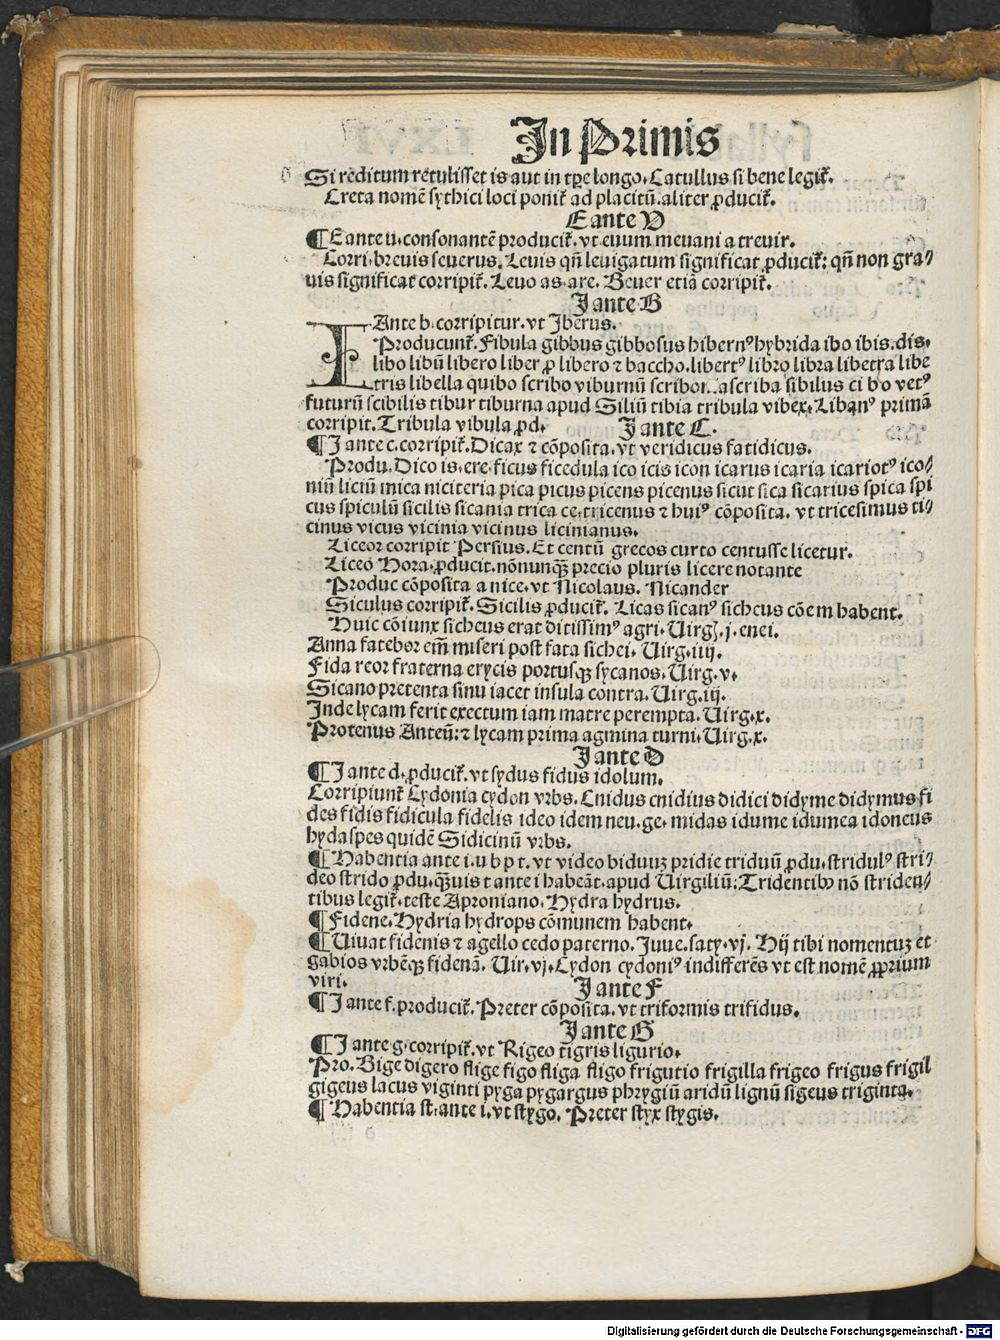 In Primis
Si rēditum retulisset is aut in tp̄e longo. Catullus si bene legit᷑.
Creta nomē sythici loci ponit᷑ ad placitū. aliter ꝓducit᷑.
E ante V
¶ E ante u. consonantē producit᷑. vt euum meuani a treuir.
Corri. breuis seuerus. Leuis qn̄ leuigatum significat ꝓducit᷑: qn̄ non gra⸗
uis significat corripit᷑. Leuo as are. Beuer etiā corripit᷑.
I ante B
I Ante b. corripitur. vt Iberus.
Producunt᷑. Fibula gibbus gibbosus hibernꝰ hybrida ibo ibis. dis.
libo libū libero liber ꝓ libero ⁊ baccho. libertꝰ libro libra libetra libe
tris libella quibo scribo viburnū scribo. ascriba sibilus ci bo vetꝰ
futurū scibilis tibur tiburna apud Siliū tibia tribula vibex. Libanꝰ primā
corripit. Tribula vibula ꝓd. I ante C.
¶ I ante c. corripit᷑. Dicax ⁊ cōposita. vt veridicus fatidicus.
Produ. Dico is. ere. ficus ficedula ico icis icon icarus icaria icariotꝰ ico⸗
niū liciū mica niciteria pica picus picens picenus sicut sica sicarius spica spi
cus spiculū sicilis sicania trica ce. tricenus ⁊ huiꝰ cōposita. vt tricesimus ti⸗
cinus vicus vicinia vicinus licinianus.
Liceor corripit Persius. Et centū grecos curto centusse licetur.
Liceo Hora. ꝓducit. nōnunqꝫ precio pluris licere notante
Produc cōposita a nice. vt Nicolaus. Nicander
Siculus corripit᷑. Sicilis ꝓducit᷑. Licas sicanꝰ sicheus cōem habent.
Huic cōiunx sicheus erat ditissimꝰ agri. Uirgꝭ. j. enei.
Anna fatebor em̄ miseri post fata sichei. Uirg. iiij.
Fida reor fraterna erycis portusqꝫ sycanos. Uirg. v.
Sicano pretenta sinu iacet insula contra. Uirg. iij.
Inde lycam ferit exectum iam matre perempta. Uirg. x.
Protenus Anteū: ⁊ lycam prima agmina turni. Uirg. x.
I ante D
¶ I ante d. ꝓducit᷑. vt sydus fidus idolum.
Corripiunt᷑ Cydonia cydon vrbs. Cnidus cnidius didici didyme didymus fi
des fidis fidicula fidelis ideo idem neu. ge. midas idume idumea idoneus
hydaspes quidē Sidicinū vrbs.
¶ Habentia ante i. u b p t. vt video biduuꝫ pridie triduū ꝓdu. stridulꝰ stri⸗
deo strido ꝓdu. qꝫuis t ante i habeāt. apud Uirgiliū: Tridentibꝰ nō striden⸗
tibus legit᷑. teste Aproniano. Hydra hydrus.
¶ Fidene. Hydria hydrops cōmunem habent.
¶ Uiuat fidenis ⁊ agello cedo paterno. Juue. saty. vj. Hij tibi nomentuꝫ et
gabios vrbēqꝫ fidenā. Uir. vj. Cydon cydoniꝰ indifferēs vt est nomē ꝓprium
viri. I ante F
¶ I ante f. producit᷑. Preter cōposita. vt triformis trifidus.
I ante G
¶ I ante g. corripit᷑. vt Rigeo tigris ligurio.
Pro. Bige digero flige figo fliga fligo frigutio frigilla frigeo frigus frigil
gigeus lacus viginti pyga pygargus phrygiū aridū lignū sigeus triginta.
¶ Habentia st. ante i. vt stygo. Preter styx stygis.
Digitalisierung gefördert durch die Deutsche Forschungsgemeinschaft - DFG